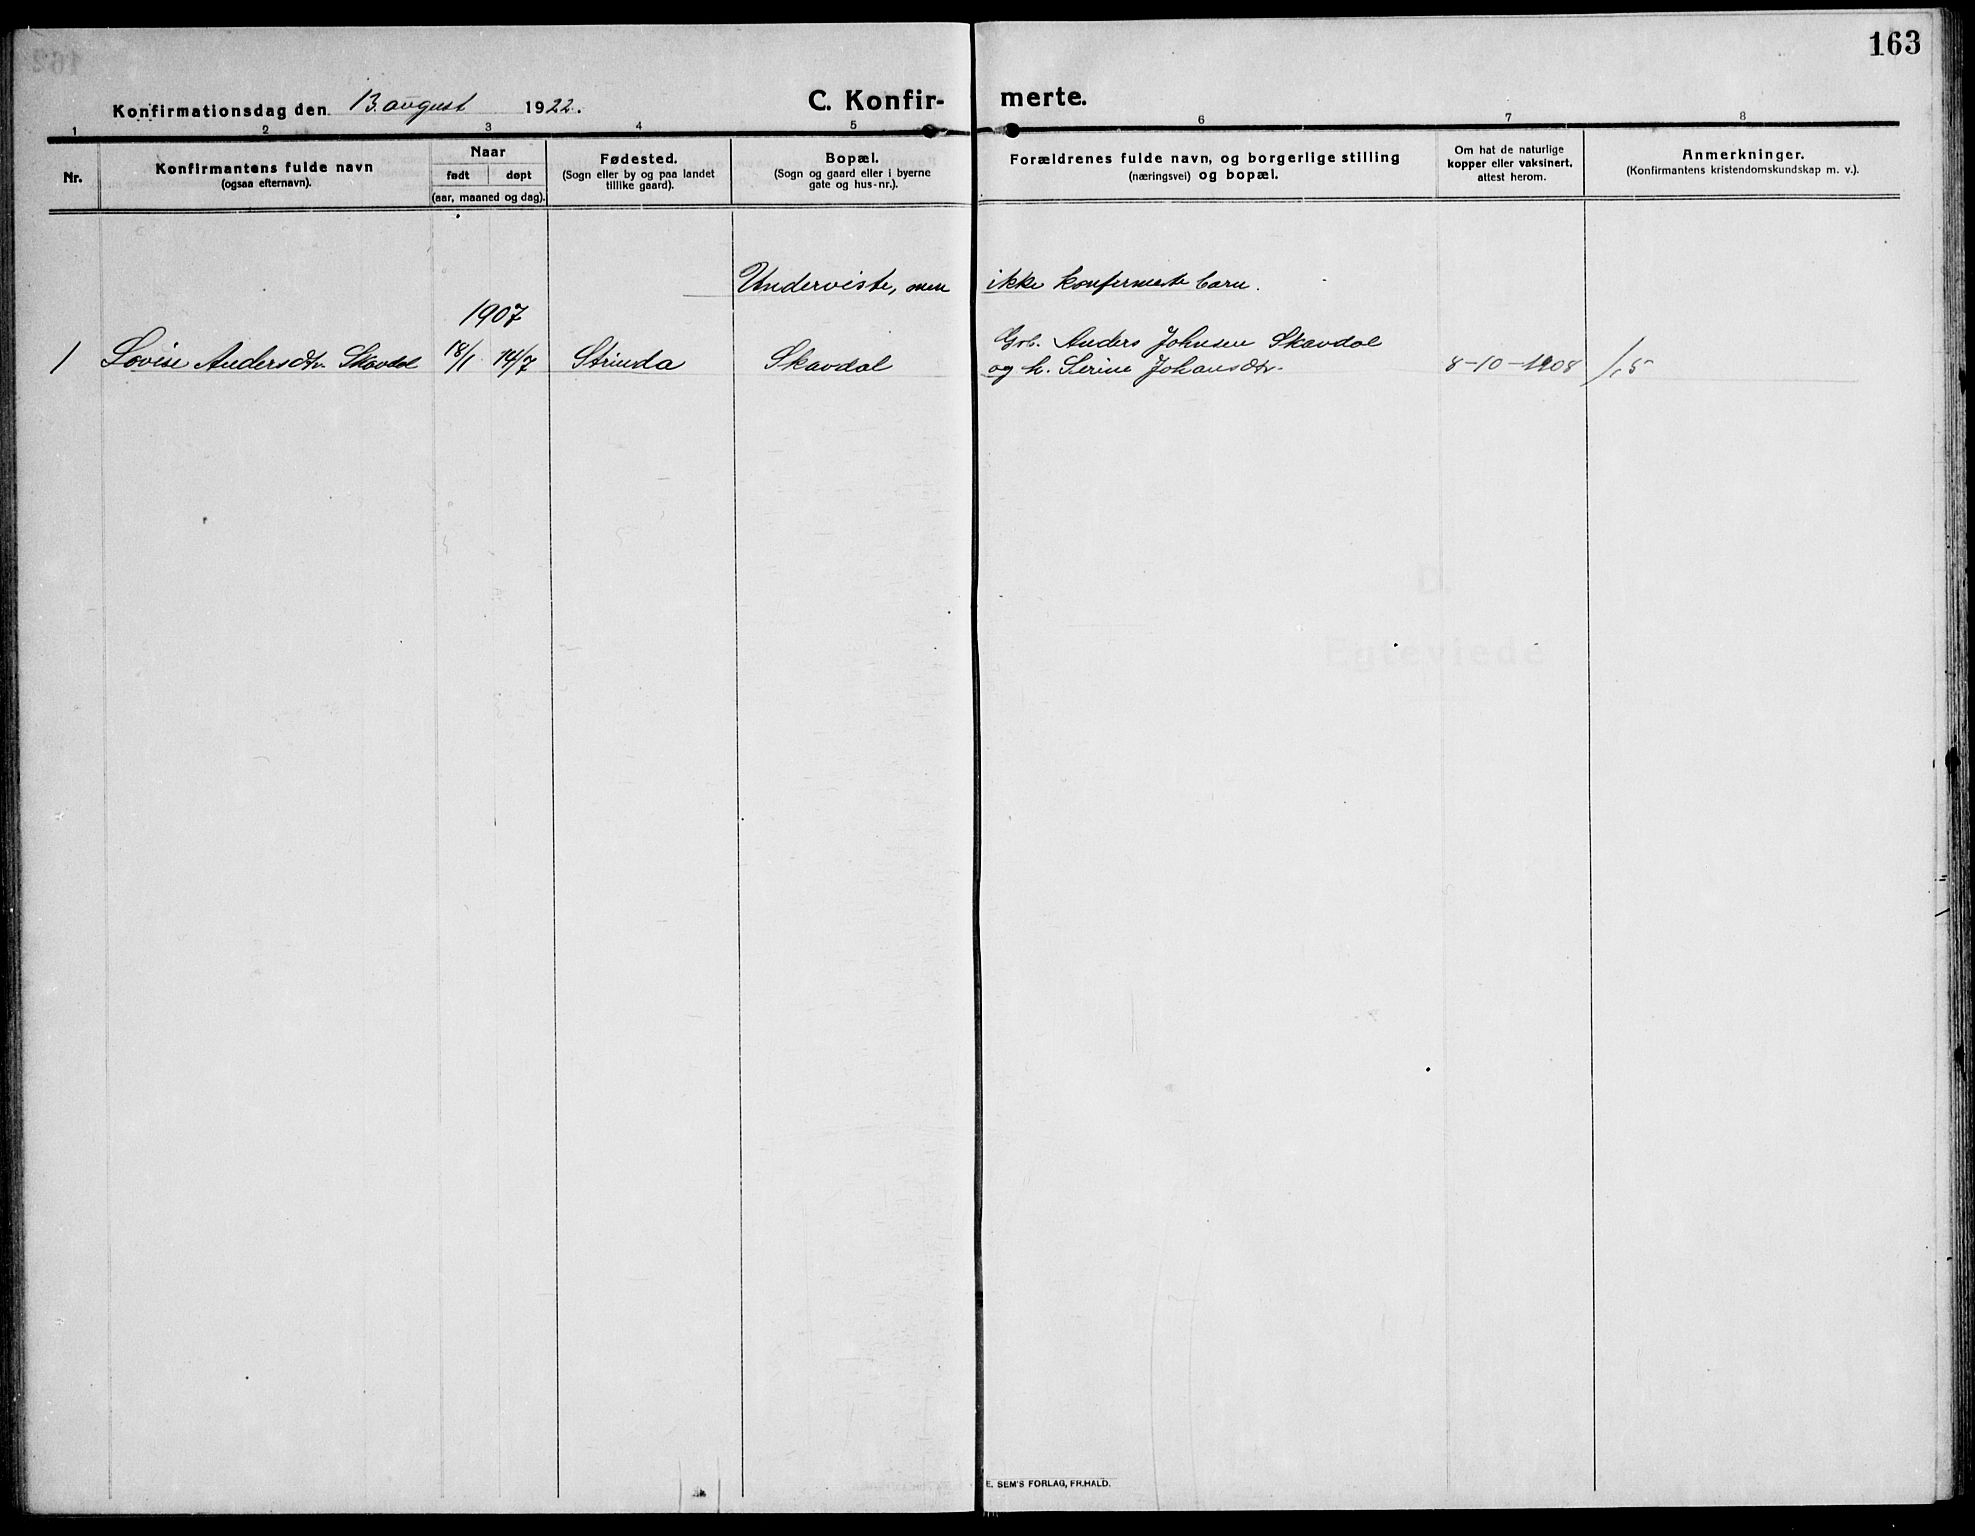 163
Konfirmationsdag den 13. august 1922.
C. Konfir-
merte.
1 2 3 4 5 6 7 8
Nr.
Konfirmantens fulde navn
(ogsaa efternavn).
Naar
født
døpt
(aar, maaned og dag).
Fødested.
(Sogn eller by og paa landet
tillike gaard).
Bopæl.
(Sogn og gaard eller i byerne
gate og hus-nr.).
Forældrenes fulde navn, og borgerlige stilling
(næringsvei) og bopæl.
Om hat de naturlige
kopper eller vaksinert,
attest herom.
Anmerkninger.
(Konfirmantens kristendomskundskap m. v.).
Underviste, men ikke konfirmerte barn.
1907
Grb. Anders Johnsen Skavdal
1 Lovise Andersdtr. Skavdal 18/1 14/7 Strinda Skavdal og h. Serine Johansdtr. 8-10-1908 1,5
D.
Egteviede
E. SEM'S FORLAG, FR.HALD.